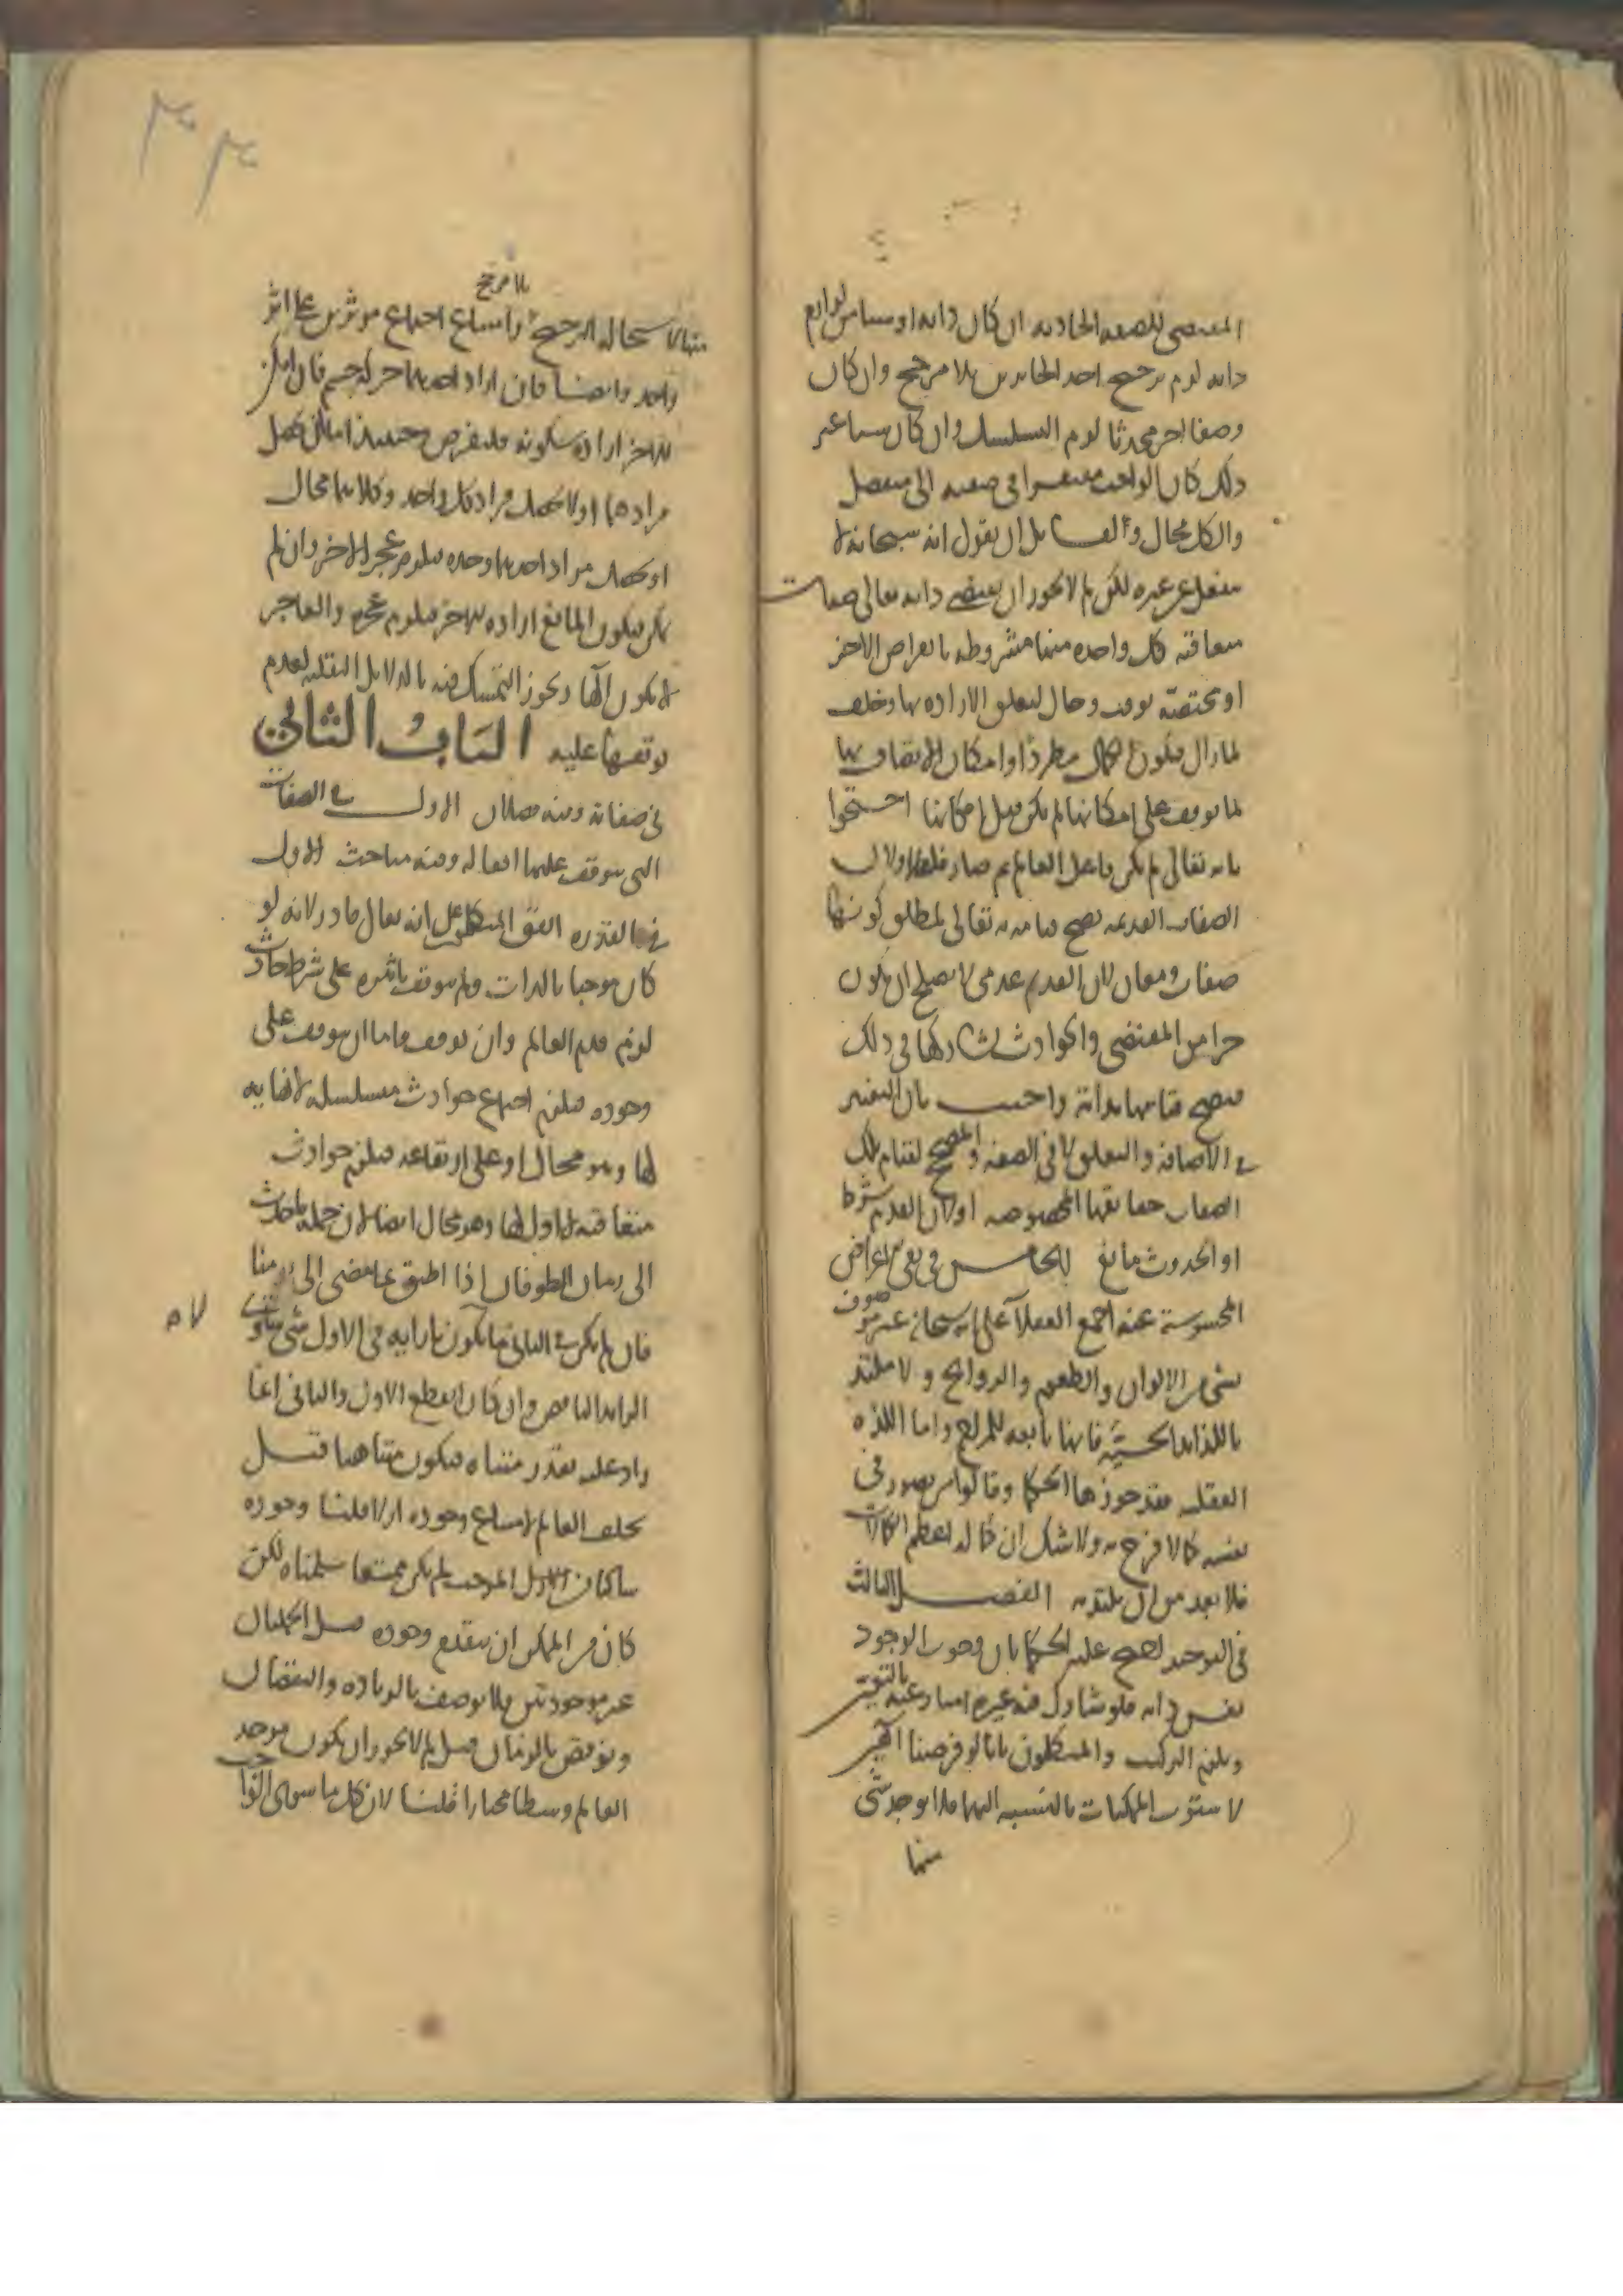 المقتضى للصفة الحادثة ان كان ذاته او شيئا من لوازم
ذاته لزم ترجيح احد الجايزين بلا مرجح وان كان
وصفا اخر محدثا لزم التسلسل وان كان شيئا غير
ذلك كان الواجب مفتقرا في صفته الى منفصل
والكل محال ولقايل ان يقول انه سبحانه لا
ينفعل عن غيره لكن لم لا يجوز ان يقتضي ذاته تعالى صفات
متعاقبة كل واحدة منها مشروطة بانقراض الاخر
او مختصة بوقت وحال لتعلق الارادة بها وخلف
لما زال فيكون الكمال مطردا وامكان الاتصاف بها
لما توقف على امكانها لم يكن قبل امكانها احتجوا
بانه تعالى لم يكن فاعل العالم ثم صار فاعلا ولان
الصفات القديمة يصح قيامه به تعالى لمطلق كونها
صفات ومعان لان القدم عدمي لا يصلح ان يكون
جزا من المقتضى والحوادث تشاركها في ذلك
فيصح قيامها بذاته واجيب بان التغير
في الاضافة والتعلق لا في الصفة والمصحح لقيام تلك
الصفات حقايقها المخصوصة او لان القدم شرط
او الحدوث مانع الخامس في نفي الاعراض
المحسوسة عنه اجمع العقلا على انه سبحانه غير موصوف
بشي من الالوان والطعوم والروايح ولا ملتذ
باللذات الحسية فانها تابعة للمزاج واما اللذة
العقلية فقد جوزها الحكما وقالوا من تصور في
نفسه كمالا فرح به ولا شك ان كماله اعظم الكمالات
فلا بعد من ان يلتذ به الفصل الثالث
في التوحيد احتج عليه الحكما بان وجوب الوجود
نفس ذاته فلو شارك فيه غيره امتاز عنه بالتعين
ويلزم التركيب والمتكلمون بانا لو فرضنا الهين
لاستوت الممكنات بالنسبة اليهما فلا يوجد شي
منها
منها لاستحالة الترجيح بلا مرجح وامتناع اجتماع موثرين على اثر
واحد وايضا فان اراد احدهما حركة جسم فان امكن
للاخر ارادة سكونه فلنفرض وحينئذ اما ان يحصل
مرادهما او لا يحصل مراد كل واحد وكلاهما محال
او يحصل مراد احدهما وحده فيلزم عجز الاخر وان لم
يمكن فيكون المانع ارادة الاخر فيلزم عجزه والعاجز
لا يكون الها ويجوز التمسك فيه بالدلايل النقلية لعدم
توقفها عليه الباب الثاني
في صفاته وفيه فصلان الاول في الصفات
التي يتوقف عليها افعاله وفيه مباحث الاول
في القدرة اتفق المتكلمون على انه تعالى قادر لانه لو
كان موجبا بالذات ولم يتوقف تاثيره على شرط حادث
لزم قدم العالم وان توقف فاما ان يتوقف على
وجوده فيلزم اجتماع حوادث متسلسلة لا نهاية
لها وهو محال او على ارتفاعه فيلزم حوادث
متعاقبة لا اول لها وهو محال ايضا لان جملة ما حدث
الى زمان الطوفان اذا اطبق بما مضى الى يومنا
فان لم يكن في الثاني ما يكون بازايه في الاول شي تساوى
الزايد الناقص وان كان انقطع الاول والثاني انما
زاد عليه بقدر متناه فيكون متناهيا قيل
تخلف العالم لامتناع وجوده ازلا قلنا وجوده
ساكنا في الازل الموجب لم يكن ممتنعا سلمناه لكن
كان من الممكن ان يتقدم وجوده قيل الجملتان
غير موجودتين فلا توصف بالزيادة والنقصان
ونوقض بالزمان قيل لم لا يجوز ان يكون موجد
العالم وسطا مختارا قلنا لان كل ما سوى الواجب